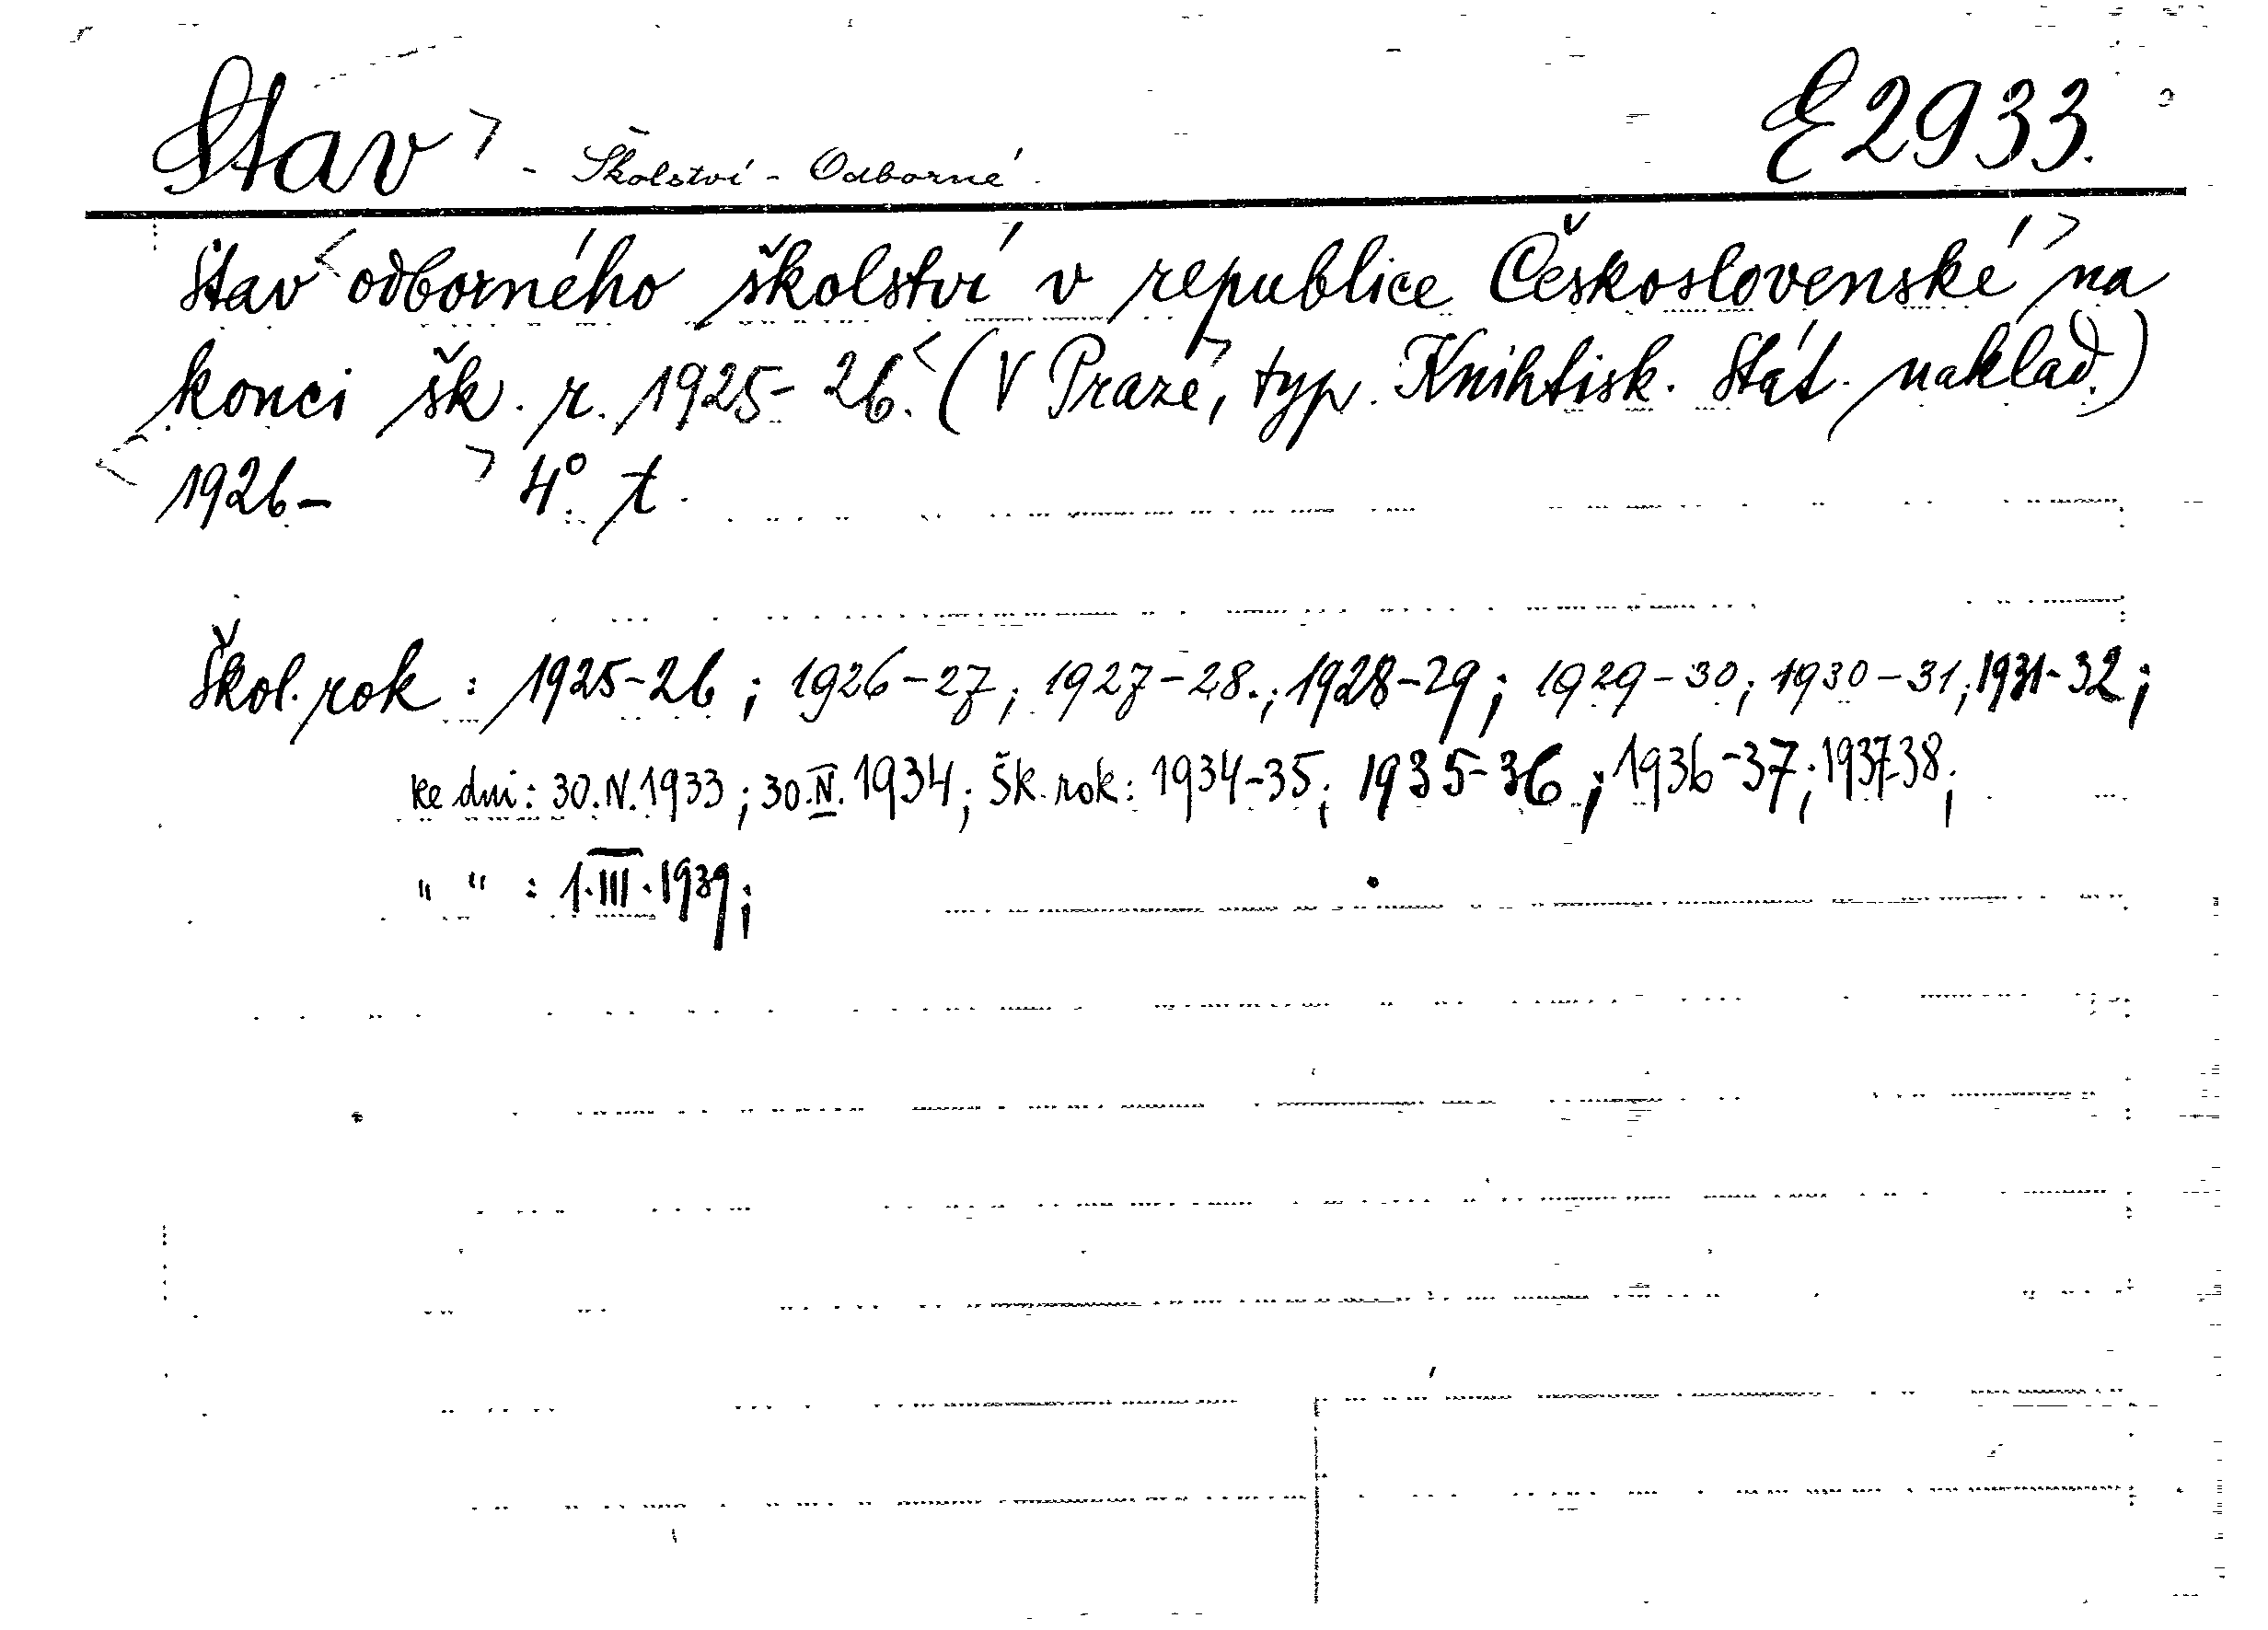 Stav - Školství - Odborné. E 2933.
Stav odborného školství v republice Československé na
konci šk. r. 1925-26. (V Praze, typ. Knihtisk. Stát. naklad.)
1926- 4° t.
Škol. rok: 1925-26; 1926-27; 1927-28.; 1928-29; 1929-30; 1930-31; 1931-32;
ke dni: 30.IV.1933; 30.IV.1934; Šk. rok: 1934-35; 1935-36; 1936-37; 1937-38;
" " : 1.III.1939;